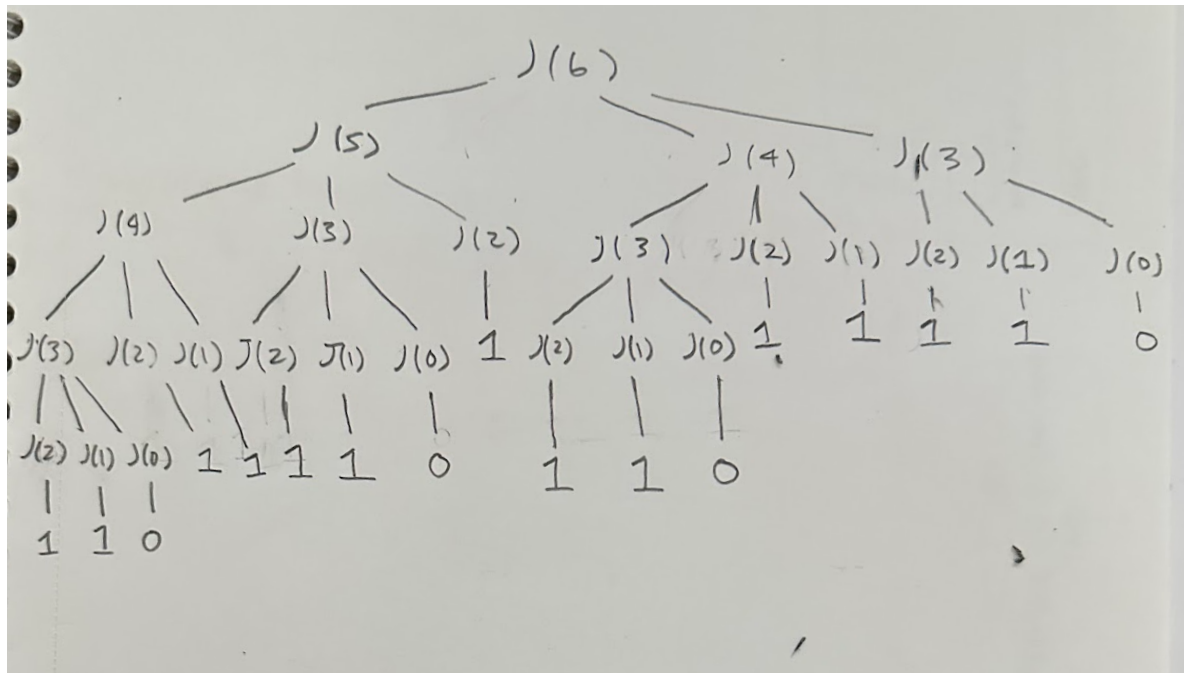 J(6)
J(5) J(4) J(3)
J(4) J(3) J(2) J(3) J(2) J(1) J(2) J(1) J(0)
J(3) J(2) J(1) J(2) J(1) J(0) 1 J(2) J(1) J(0) 1 1 1 1 0
J(2) J(1) J(0) 1 1 1 1 0 1 1 0
1 1 0